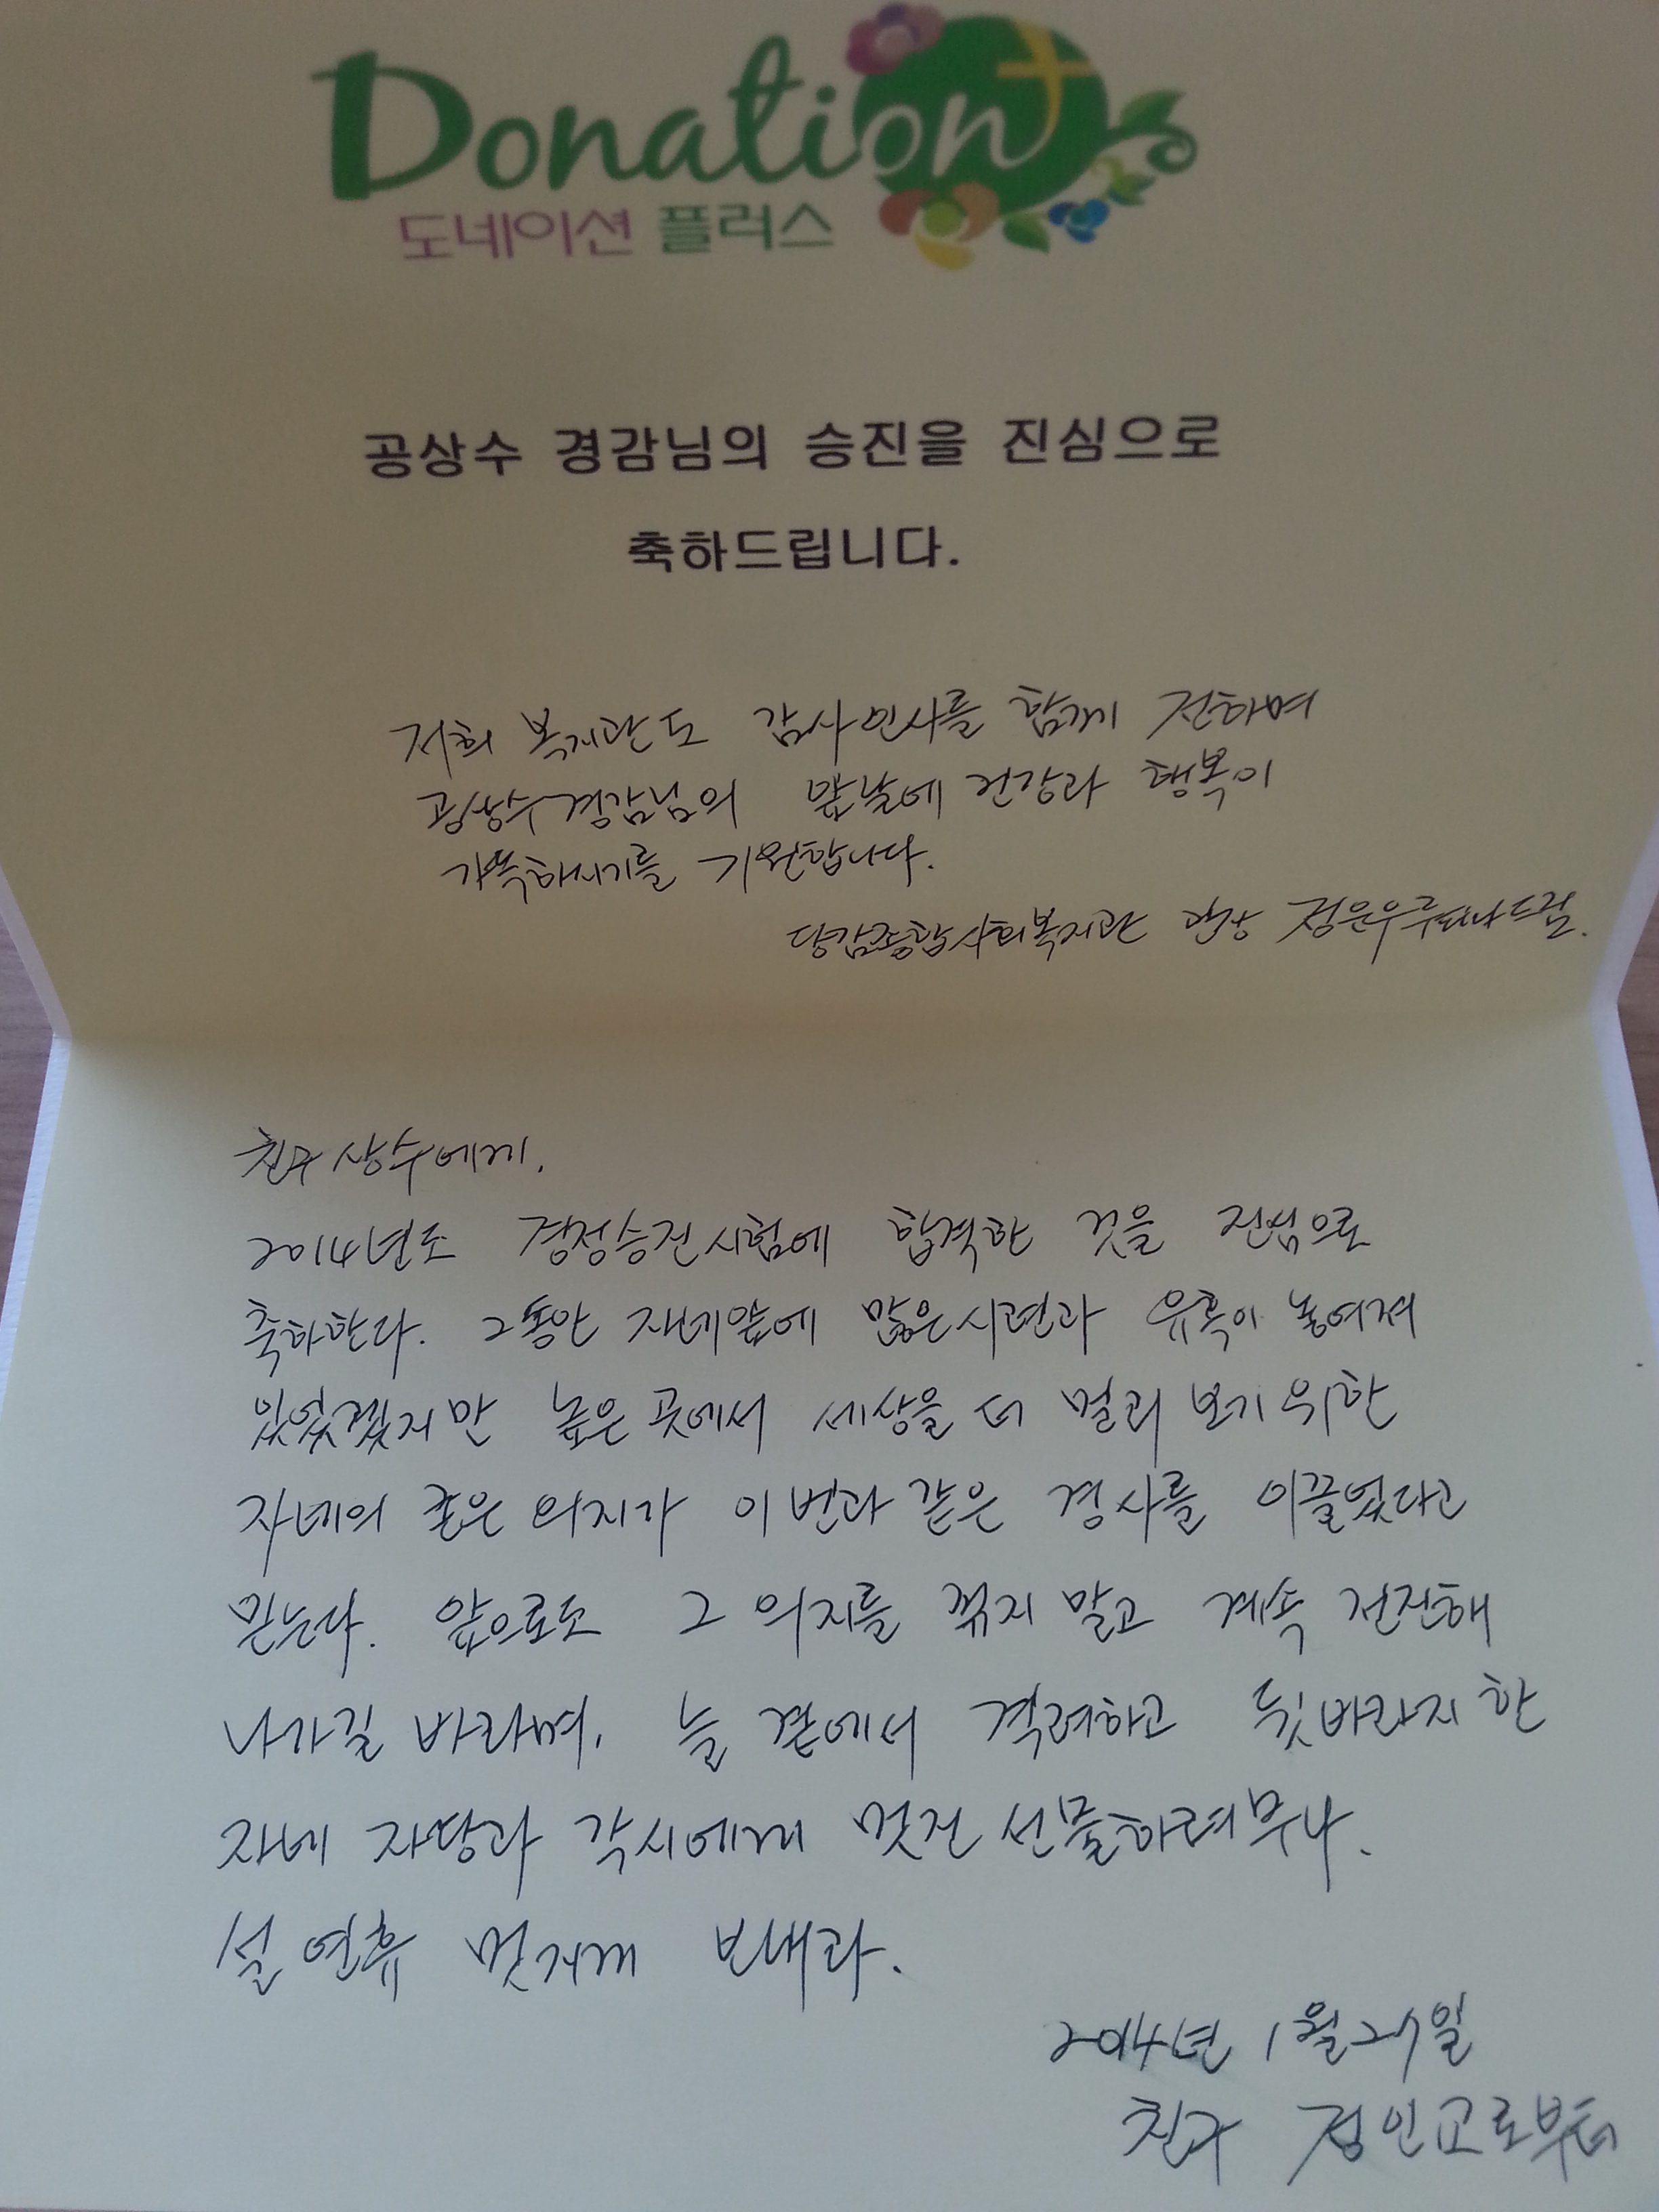 Donation+
도네이션 플러스
공상수 경감님의 승진을 진심으로
축하드립니다.
저희 복지관도 감사인사를 함께 전하며
공상수경감님의 앞날에 건강과 행복이
가득하시기를 기원합니다.
당감종합사회복지관 관장 정은우루피나드림.
친구 상수에게.
2014년도 경정승진시험에 합격한 것을 진심으로
축하한다. 그동안 자네앞에 많은시련과 유혹이 놓여져
있었겠지만 높은 곳에서 세상을 더 멀리 보기 위한
자네의 굳은 의지가 이번과 같은 경사를 이끌었다고
믿는다. 앞으로도 그 의지를 꺾지 말고 계속 전진해
나가길 바라며, 늘 곁에서 격려하고 뒷바라지 한
자네 자당과 각시에게 멋진 선물하려무나.
설 연휴 멋지게 보내라.
2014년 1월 27일
친구 정인교로부터